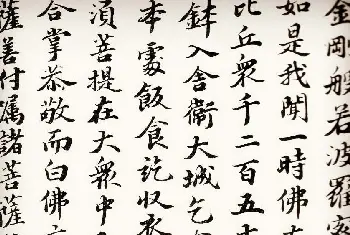 金剛般若波羅蜜
如是我聞一時佛在
比丘眾千二百五十
鉢入舍衞大城乞
本處飯食訖收衣
須菩提在大眾中
合掌恭敬而白佛
薩善付囑諸菩薩